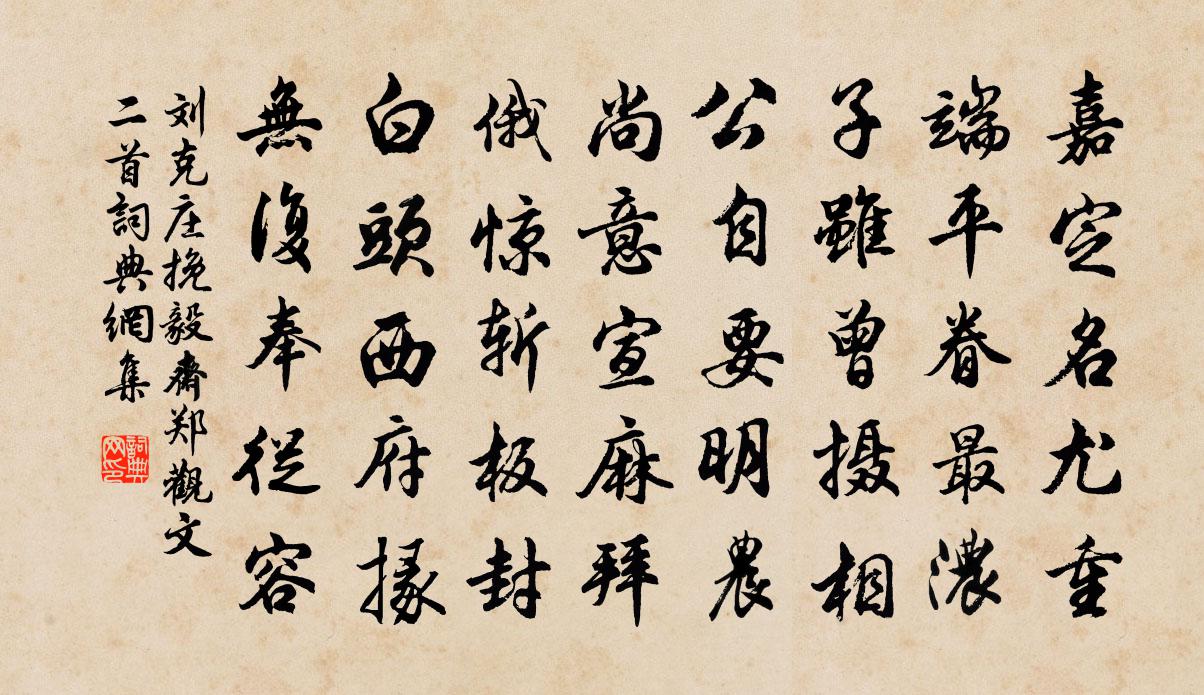 嘉定名尤重
端平眷最濃
子雖曾摄相
公自要明農
尚意宣麻拜
俄惊斩板封
白頭西府掾
無復奉從容
刘克庄挽毅齋郑觀文
二首詞典網集
詞典网印